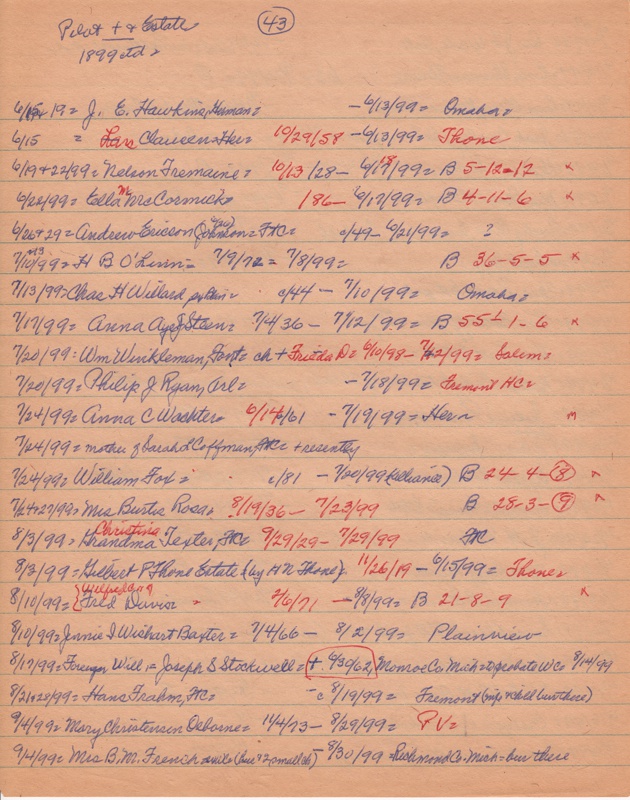 Pilot + & Estate (43)
1899 etd =
6/15 19 = J. E. Hawkins, Herman = - 6/13/99 = Omaha =
6/15 = Lars Claucen = Her = 10/29/58 - 6/13/99 = Thone
6/19 + 22/99 = Nelson Tremaine = 10/13/28 - 6/18/99 = B 5-12-12 x
6/22/99 = Ella M McCormick = 186 - 6/17/99 = B 4-11-6 x
6/26 + 29 = Andrew Ericson (Johnson = FHC = c/49 - 6/21/99 = ?
7/10 + 13/99 = H B O'Linn = 7/9/72 = 7/8/99 = B 36-5-5 x
7/13/99 = Chas H Willard c/44 - 7/10/99 = Omaha =
7/17/99 = Anna Steen = 7/4/36 - 7/12/99 = B 55-1-6 x
7/20/99 : Wm Winkleman, Font = ch + Frieda D = 6/10/98 - 7/2/99 = Salem =
7/20/99 = Philip J Ryan, Arl = - 7/18/99 = Fremont HC =
7/24/99 = Anna C Wachter = 6/14/61 - 7/19/99 = Her = m
7/24/99 = mother of Sarah L Coffman, FHC = + recently
7/24/99 = William Fox = c/81 - 7/20/99 (Alliance) B 24-4-(8) x
7/24 + 27/99 = Mrs Burtis Rosa, 8/19/36 - 7/23/99 B 28-3-(9) x
8/3/99 = Grandma Christina Texter, FHC 9/29/29 - 7/29/99 FHC
8/3/99 = Gilbert P Thone Estate (by H N Thone) 11/26/19 - 6/15/99 = Thone x
8/10/99 = Fred Davis 2/6/71 - 8/8/99 = B 21-8-9 x
8/10/99 = Jennie I Wichart Baxter = 7/4/66 - 8/2/99 = Plainview
8/17/99 = Foreign Will := Joseph S Stockwell = + 4/30/62, Monroe Co. Mich = to probate W C = 8/14/99
8/21 + 28/99 = Hans Frahm, FHC = - c 8/19/99 = Fremont (wife + child bur there)
9/4/99 = Mary Christensen Osborne = 11/4/73 - 8/29/99 = PV =
9/4/99 = Mrs B. M. French = (lvs + 2 small ch) - 8/30/99 = Richmond Co. Mich = bur there